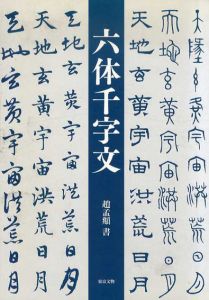 六体千字文
趙孟頫 書
天地玄黃宇宙洪荒日月
天地玄黃宇宙洪荒日月
天地玄黃宇宙洪荒日月
天地玄黃宇宙洪荒日月
天地玄黃宇宙洪荒日月
天地玄黃宇宙洪荒日月